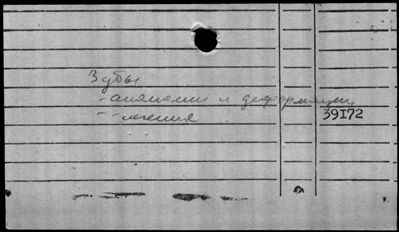 Зубы
- аномалии и деформации
- - лечения
39I72